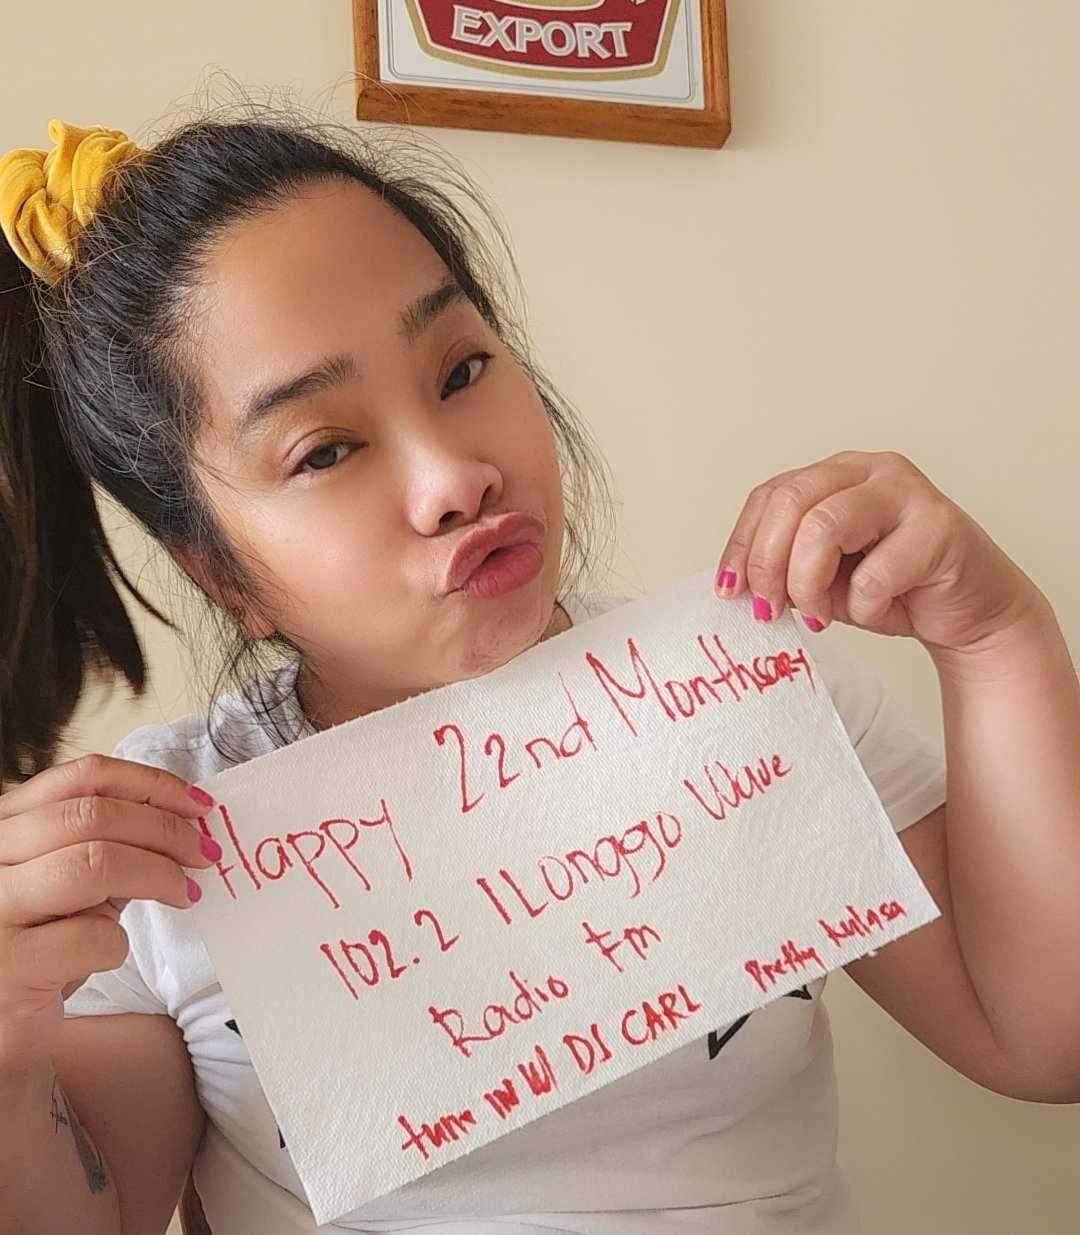 EXPORT
Happy 22nd Monthsary
102.2 ILonggo Wave
Radio Fm
tune IN W/ DJ CARL Pretty kulasa